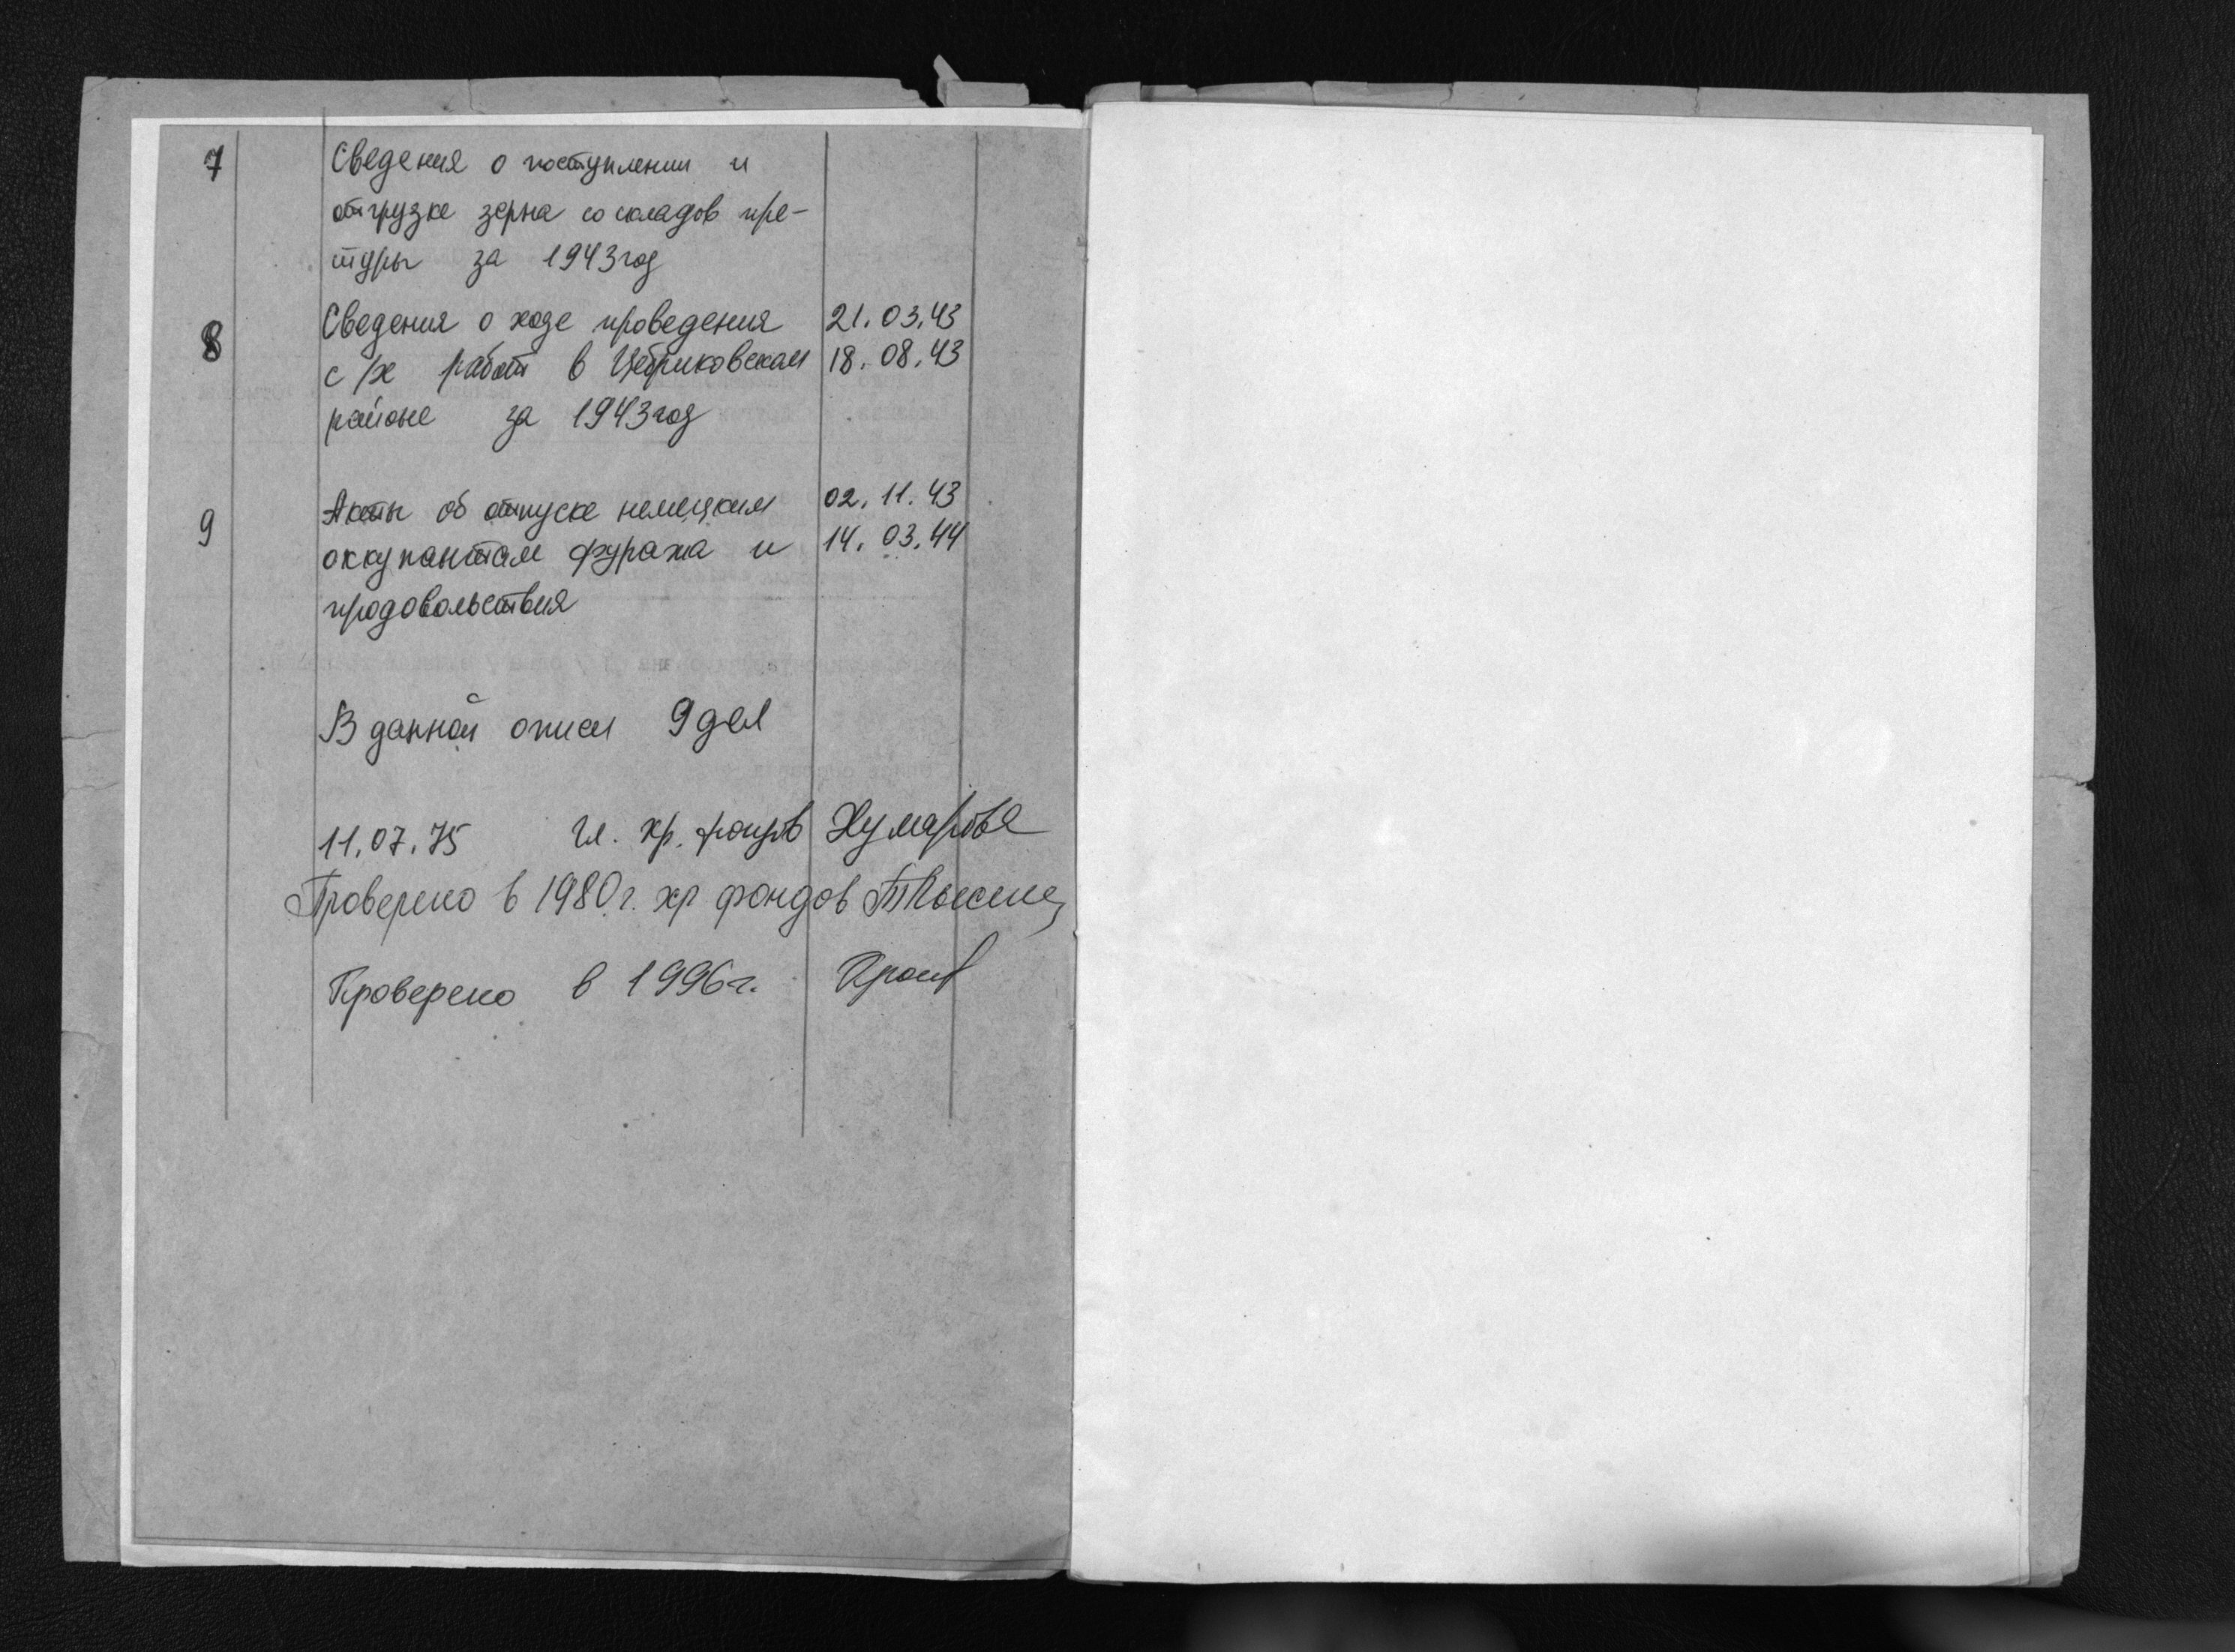 7 Сведения о поступлении и
отгрузке зерна со складов пре-
туры за 1943 год
8 Сведения о ходе проведения 21.03.43
с/х работ в Цебриковском 18.08.43
районе за 1943 год
9 Акты об отпуске немецким 02.11.43
оккупантам фуража и 14.03.44
продовольствия
В данной описи 9 дел
11.07.75 Гл. хр. фондов
Проверено в 1980 г. хр фондов
Проверено в 1996 г.